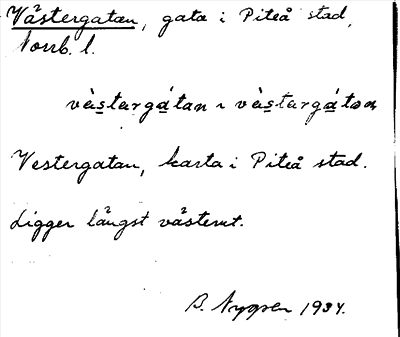 Västergatan, gata i Piteå stad,
Norrb. l.
västargatan ı västargatan
Vestergatan, karta i Piteå stad.
Ligger längst västerut.
B. Nygren 1934.